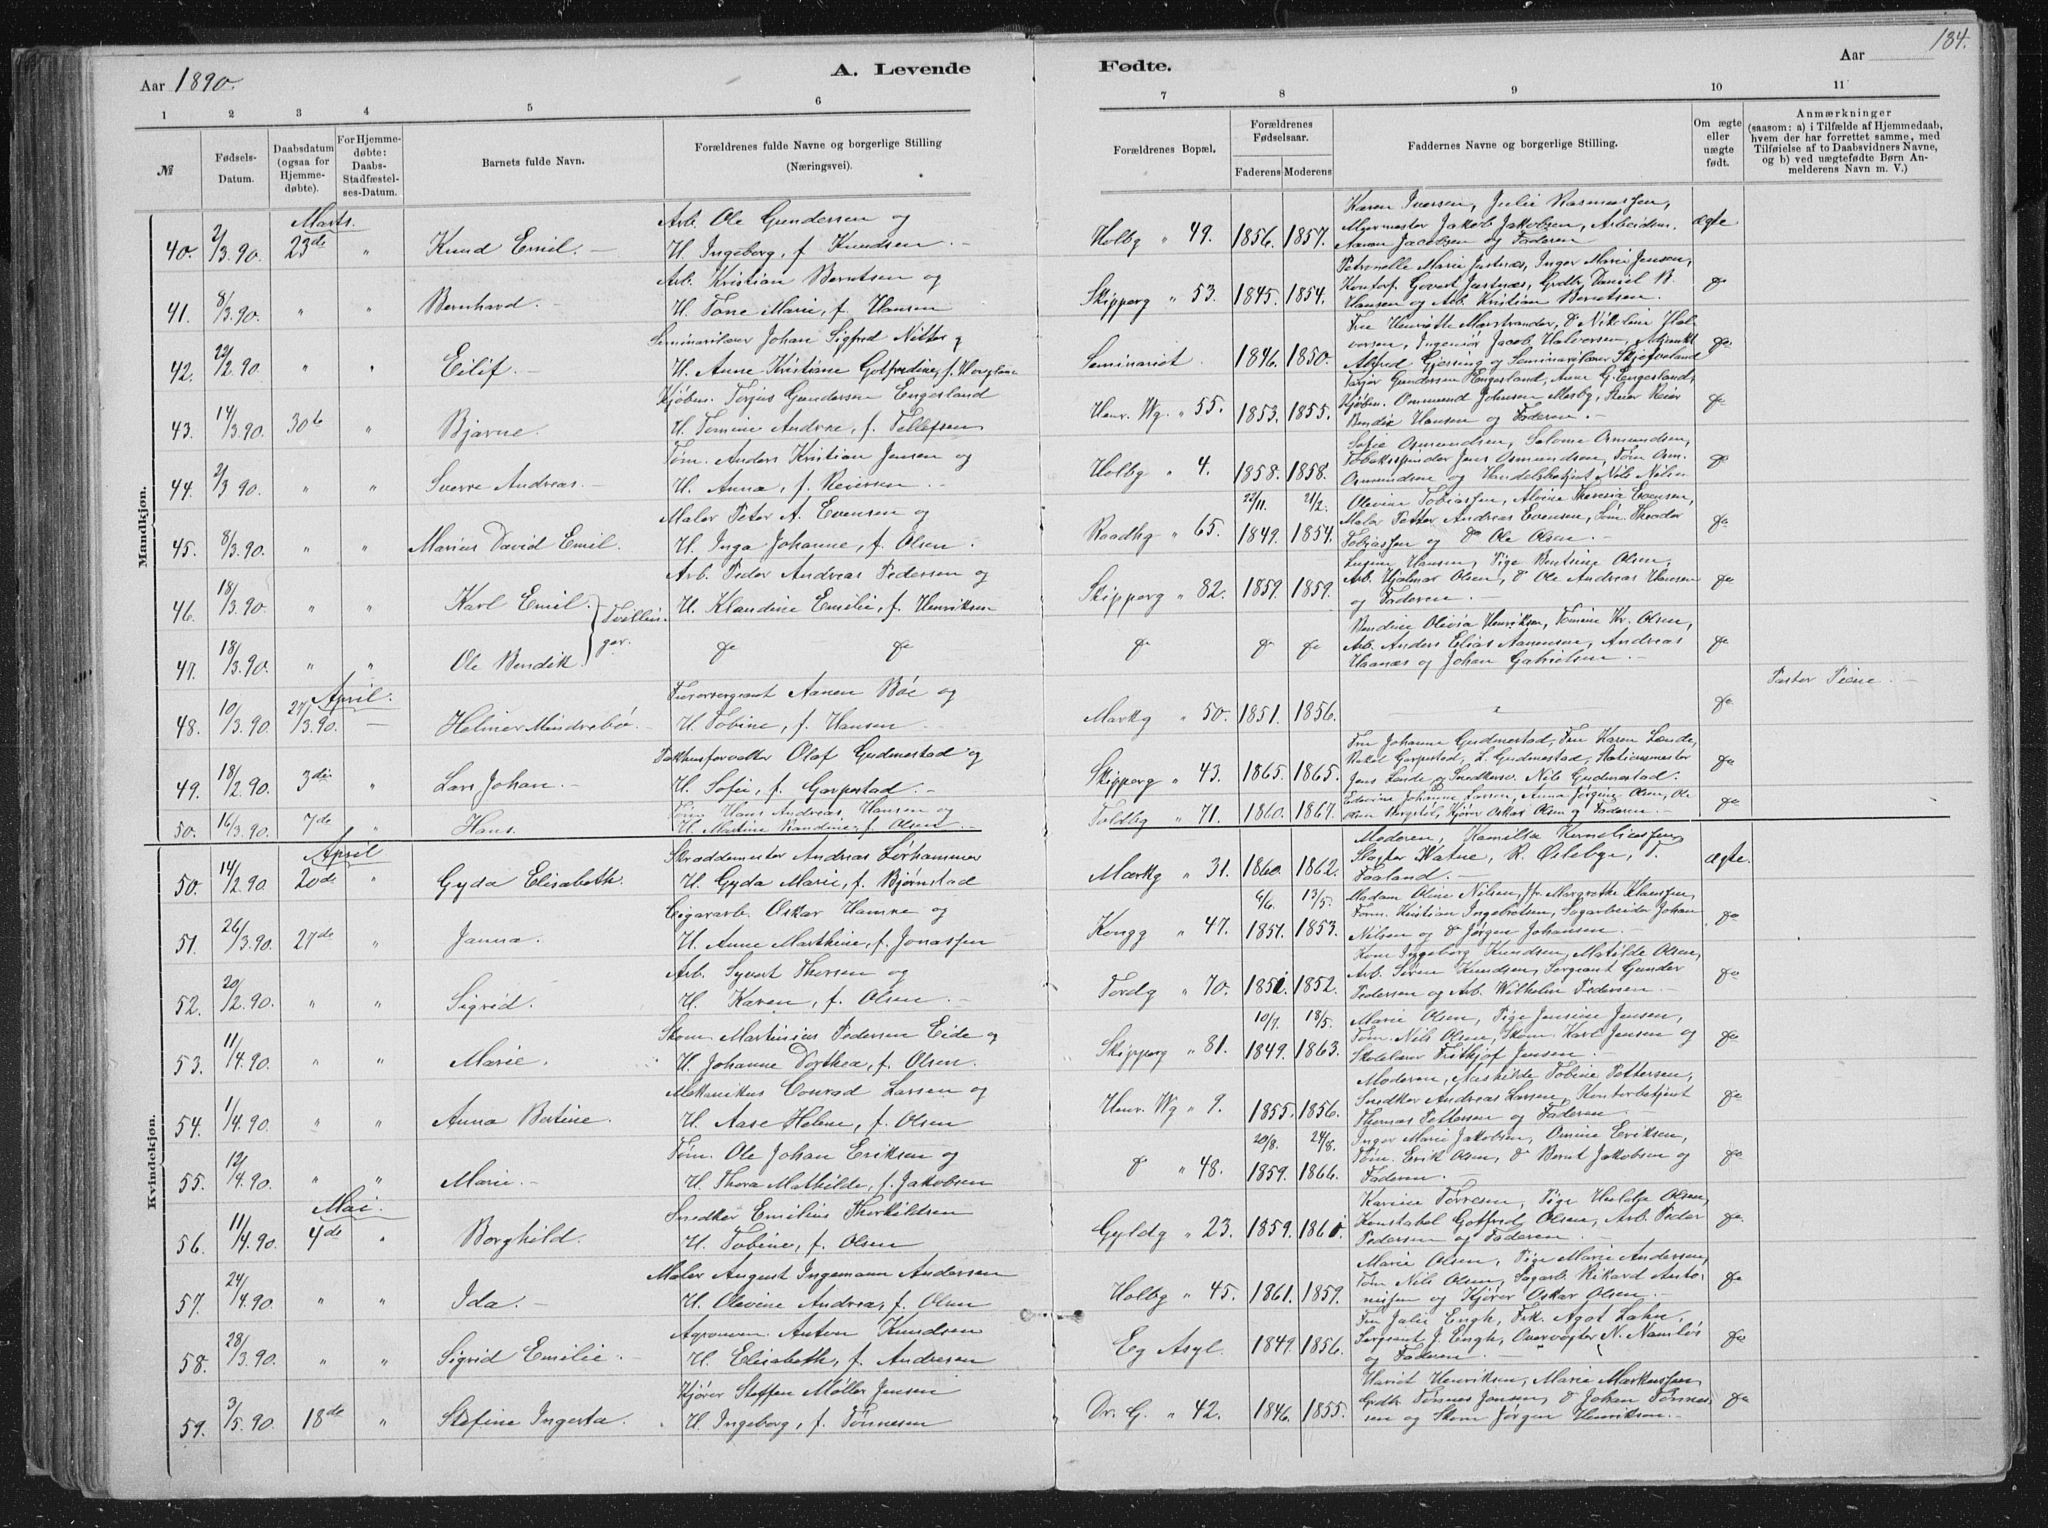 Aar 1890.
A. Levende
Fødte.
Aar
184.
1 2 3 4 5 6 7 8 9 10 11
№
Fødsels-Datum.
Daabsdatum (ogsaa for Hjemmedøbte).
For Hjemmedøbte: Daabs-Stadfæstelses-Datum.
Barnets fulde Navn.
Forældrenes fulde Navne og borgerlige Stilling (Næringsvei).
Forældrenes Bopæl.
Forældrenes Fødselsaar.
Faderens Moderens
Faddernes Navne og borgerlige Stilling.
Om ægte eller uægte født.
Anmærkninger
(saasom: a) i Tilfælde af Hjemmedaab, hvem der har forrettet samme, med Tilføielse af to Daabsvidners Navne, og b) ved uægtefødte Børn Anmelderens Navn m. V.)
Mandkjøn.
Marts.
40. 2/3.90. 23de " Knud Emil. Arb. Ole Gundersen og H. Ingeborg, f. Knudsen. Holbg " 49. 1856. 1857. Karen Iversen, Julie Rasmussen, Murmester Jakob Jakobsen, Arbeidsm. Aanon Jacobsen og Faderen ægte
41. 8/3.90. " " Bernhard. Arb. Kristian Berntsen og H. Tone Marie, f. Hansen Skipperg " 53. 1845. 1854. Petronelle Marie Justnæs, Inger Marie Jensen, Kontorf. Govert Justnæs, Grdbr. Daniel B. Hansen og Arb. Kristian Berntsen. do
42. 22/2.90. " " Eilif. Seminarilærer Johan Sigfred Nitter og H. Anne Kristiane Gotfredine, f. Seminariet. 1846. 1850. Fru Henriette Marstrander, do Nikoline Halvorsen, Ingeniør Jacob Halvorsen, Adjunkt Alfred Gjessing og Seminarilærer Skjefveland do
43. 14/3.90. 30te " Bjarne. Kjøbm. Torjus Gundersen Engesland H. Tomine Andrea, f. Tellefsen Henr. Wg. " 55. 1853. 1855. Tarjer Gundersen Engesland, Anne G. Engesland, Kjøbm. Ommund Johnsen Mosby, Reier Bendix Hansen og Faderen. do
44. 2/3 90. " " Sverre Andreas. Tøm. Anders Kristian Jensen og H. Anna, f. Reiersen. Holbg " 4. 1858. 1858. Sofie Osmundsen, Salome Osmundsen, Tobakspinder Jens Osmundsen, Tøm Osm. Osmundsen og Handelsbetjent Nils Nilsen do
45. 8/3.90. " " Marius David Emil. Maler Peter A. Evensen og H. Inga Johanne, f. Olsen. Raadhg " 65. 22/11. 1849. 21/2. 1854. Olevine Tobiassen, Alvine Theresia Evensen, Maler Petter Andreas Evensen, Søm. Theodor Tobiassen og do Ole Olsen. do
46. 18/3.90. " " Karl Emil. } Tvillinger. Arb. Peder Andreas Pedersen og H. Klaudine Emilie, f. Henriksen Skipperg " 82. 1859. 1859. Hansen, Pige Bentine Olsen, Arb. Hjalmar Olsen, do Ole Andreas Hansen og Faderen. do
47. 18/3.90. " " Ole Bendik. do do do do do Bendine Olivia Henriksen, Tomine Kr. Olsen, Arb. Anders Elias Aanensen, Andreas Haanæs og Johan Gabrielsen. do
April.
48. 10/3.90. 27/3.90. — Helmer Mindrebø. Furersergeant Aanen Bøe og H. Tobine, f. Hansen Markg " 50. 1851. 1856. " do Pastor Piene.
49. 18/2.90. 3die " Lars Johan. Pakhusforvalter Olaf Gudmestad og H. Sofie, f. Garpestad. Skipperg " 43. 1865. 1865. Fru Johanne Gudmestad, Fru Karen Lende, Rakel Garpestad, L. Gudmestad, Stationsmester Jens Lende og Snedkersv. Nils Gudmestad. do
50. 16/3.90. 7de " Hans. Tøm Hans Andreas Hansen og H. Martine Randine, f. Olsen Toldbg " 71. 1860. 1867. Edevine Johanne Larsen, Anna Jørgine Olsen, Ole Olsen, Kjører Oskar Olsen og Faderen. do
Kvindekjøn.
April
50. 14/2.90 20de " Gyda Elisabeth. Skræddermester Andreas Lørhammer H. Gyda Marie, f. Bjørnstad Markg " 31. 1860. 1862. Moderen, Kamilla Korneliussen, Slagter Watne, R. Oseby, T. Faaland. ægte.
51. 26/3.90. 27de " Janna. Cigararb. Oskar Hamre og H. Anne Marthine, f. Jonassen Kongg " 47. 6/6. 1851. 13/5. 1853. Madam Oline Nilsen, Jfr. Margrethe Klausen, Form. Kristian Ingebretsen, Sagarbeider Johan Nilsen og do Jørgen Johansen. do
52. 20/2.90. " " Sigrid. Arb. Syvert Thorsen og H. Karen, f. Olsen. Tordg " 70. 1851. 1852. Kone Ingeborg Knudsen, Matilde Olsen, Arb. Søren Knudsen, Sergeant Gunder Pedersen og Arb. Wilhelm Pedersen. do
53. 11/4.90. " " Marie. Skom. Martinius Pedersen Eide og H. Johanne Dorthea, f. Olsen. Skipperg " 81. 10/7. 1849. 18/5. 1863. Marie Olsen, Pige Jensine Jensen, Tøm. Nils Olsen, Skom. Karl Jensen og Skolelærer Fritjof Jensen. do
54. 1/4.90. " " Anna Bertine. Mekanikus Conrad Larsen og H. Aase Helene, f. Olsen Henr. Wg " 9. 1855. 1856. Moderen, Mathilde Tobine Pettersen, Snedker Andreas Larsen, Kontorbetjent Thomas Pettersen og Faderen. do
55. 12/4.90. " " Marie. Tøm. Ole Johan Eriksen og H. Thora Mathilde, f. Jakobsen do " 48. 20/8. 1859. 24/8. 1866. Inger Marie Jakobsen, Omine Eriksen, Tøm. Erik Olsen, do Bernt Jakobsen og Faderen. do
Mai.
56. 11/4.90. 4de " Borghild. Snedker Emilius Thorkildsen H. Tobine, f. Olsen Gyldg " 23. 1859. 1860. Karine Torresen, Pige Hulda Olsen, Konstabel Gotfred Olsen, Arb. Peder Pedersen og Faderen. do
57. 24/4.90. " " Ida. Maler August Ingemann Andersen H. Olevine Andrea, f. Olsen Holbg " 45. 1861. 1859. Marie Olsen, Pige Marie Andersen, Tøm Nils Olsen, Sagarb. Rikard Antonisen og Kjører Oskar Olsen. do
58. 28/3.90. " " Sigrid Emilie. Agronom. Anton Knudsen H. Elisabeth, f. Andresen Eg Asyl. 1849. 1856. Fru Julie Engh, Frk. Agot Lahn, Sergeant J. Engh, Overvogter N. Namløs og Faderen. do
59. 3/5.90. 18de " Stefine Ingerta. Kjører Steffen Møller Jensen H. Ingeborg, f. Tønnesen Dr. G. " 42. 1846. 1855. Hariot Henriksen, Marie Markussen, Grdbr. Tønnes Jensen, do Johan Tønnessen og Skom Jørgen Henriksen. do